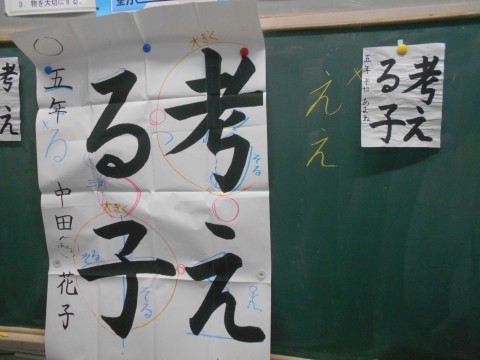 3. 物を大切にする。
考え
る子
五年
中田花子
大きく
そる
る
大きく
そる
そる
え
え
考え
る子
五年
考え